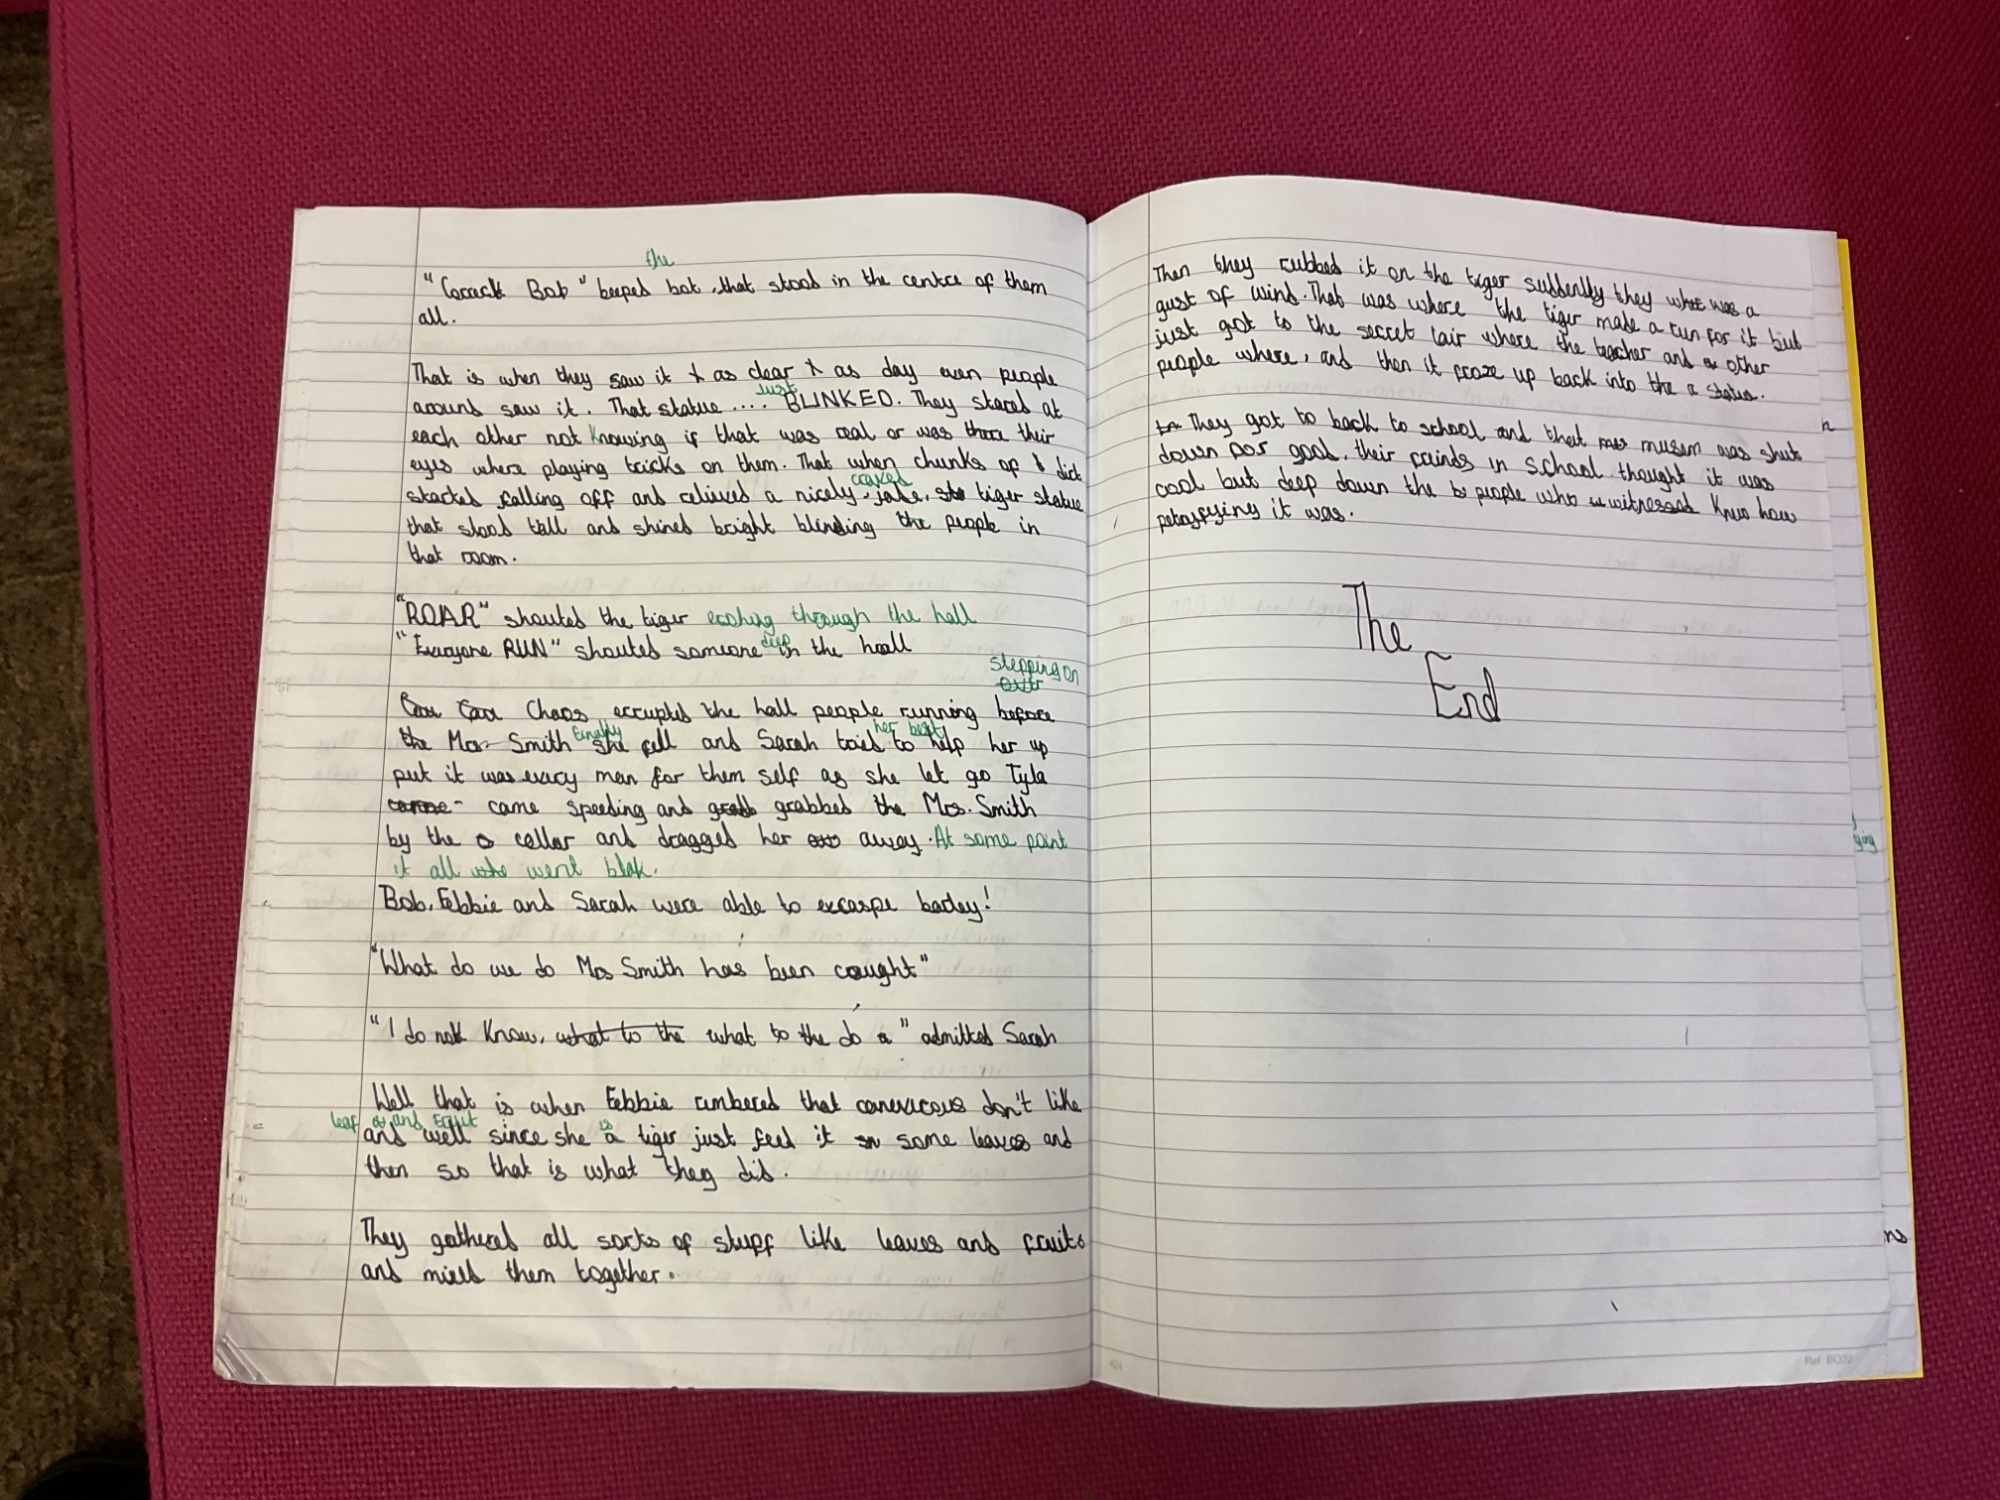 the
"Correck Bob" beeped bot, that stood in the centre of them
all.
That is when they saw it as clear as day even people
around saw it. That statue .... Just BLINKED. They stared at
each other not knowing if that was real or was there their
eyes where playing tricks on them. That when chunks of dirt
started falling off and relieved a nicely craved jade, tiger statue
that stood tall and shined bright blinding the people in
that room.
"ROAR" shouted the tiger ecohing through the hall
"Everyone RUN" shouted someone deep in the hall
stepping on
Chaos eccupied the hall people running before
the Mrs. Smith finally she fell and Sarah tried her best to help her up
put it was every man for them self as she let go Tyla
came speeding and grabbed the Mrs. Smith
by the collar and dragged her away. At some point
it all went blak.
Bob, Eebbie and Sarah were able to excaspe barley!
"What do we do Mrs Smith has been caught"
"I do not know, what to the what to the do" admitted Sarah
Well that is when Eebbie rembered that canervrous don't like
leaf and Fruit
and well since she is a tiger just feed it some leaves and
then so that is what they did.
They gathered all sorts of stuff like leaves and fruits
and mixed them together.
Then they rubbed it on the tiger suddenlly they was a
gust of wind. That was where the tiger made a run for it but
just got to the secret lair where the teacher and other
people where, and then it froze up back into the a statue.
They got to back to school and that musem was shut
down for good, their frinds in school thought it was
cool but deep down the people who witnessed knew how
petryfying it was.
The
End
n
ying
ns
Ref: BO32